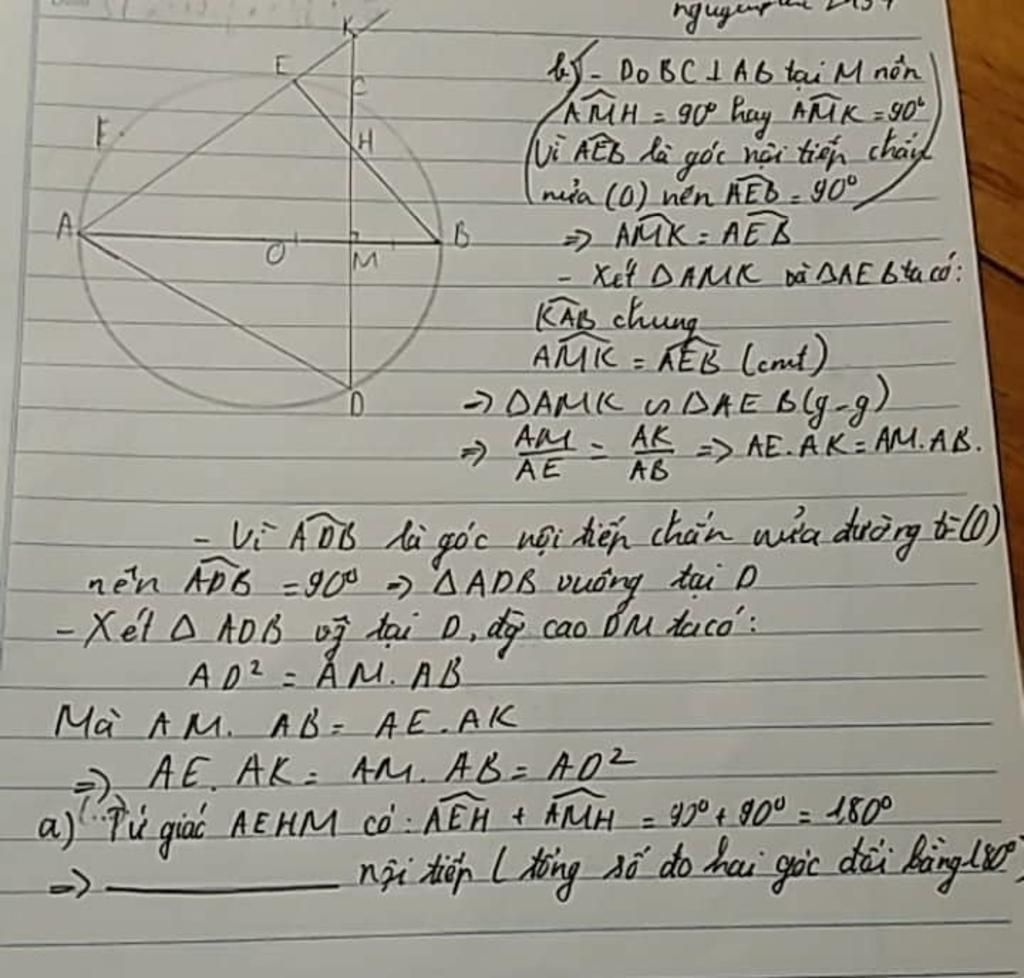 K
E
C
F
H
A
B
O
M
D
b) - Do BC ⊥ AB tại M nên
AMH = 90° hay AMK = 90°
Vì AEB là góc nội tiếp chắn
nửa (O) nên AEB = 90°
=> AMK = AEB
- Xét ΔAMK và ΔAEB ta có:
KAB chung
AMK = AEB (cmt)
=> ΔAMK ∽ ΔAEB (g-g)
=> AM/AE = AK/AB => AE.AK = AM.AB.
- Vì ADB là góc nội tiếp chắn nửa đường tr (O)
nên ADB = 90° => ΔADB vuông tại D
- Xét Δ ADB vg tại D, đg cao DM ta có:
AD² = AM. AB
Mà AM. AB = AE.AK
=> AE. AK = AM. AB = AD²
a) (...) Tứ giác AEHM có: AEH + AMH = 90° + 90° = 180°
=> nội tiếp ( tổng số đo hai góc đối bằng 180°)